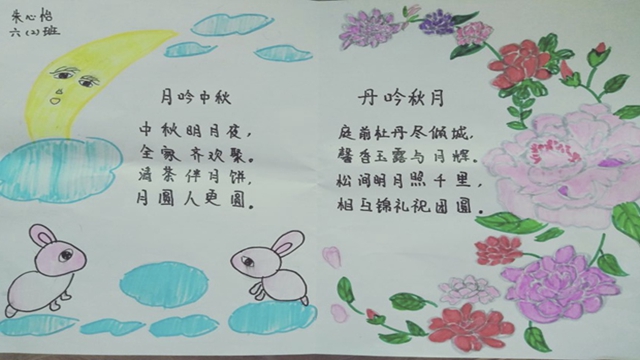 朱心怡
六(2)班
月吟中秋
中秋明月夜，
全家齐欢聚。
清茶伴月饼，
月圆人更圆。
丹吟秋月
庭前牡丹尽倾城，
馨香玉露与月辉。
松间明月照千里，
相互锦礼祝团圆。